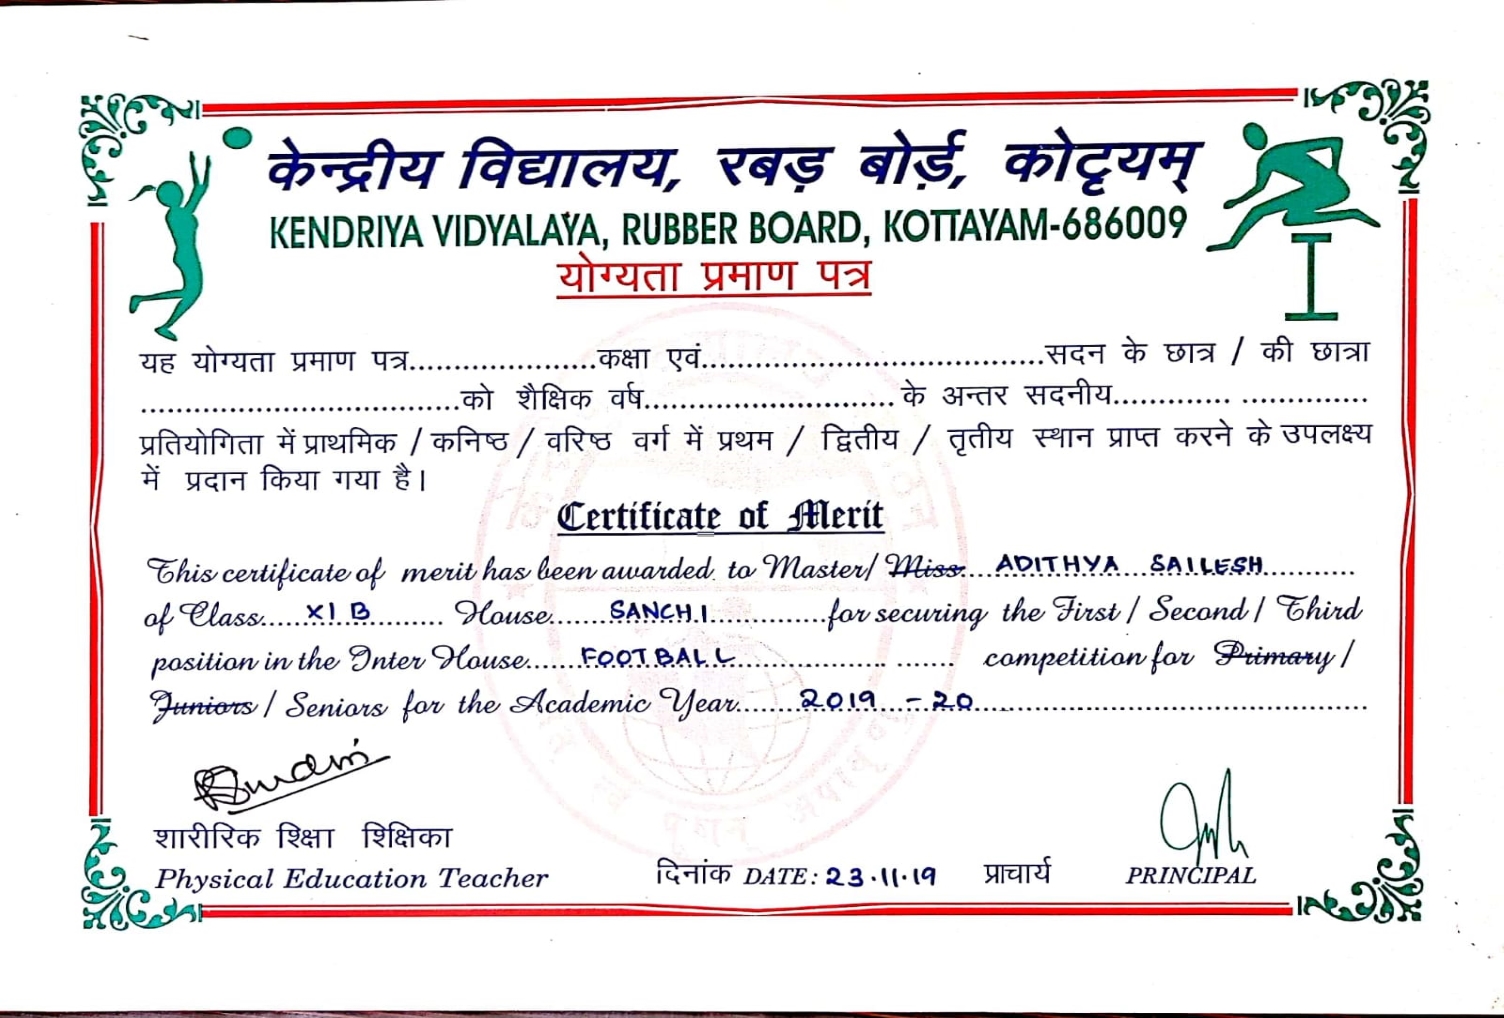 केन्द्रीय विद्यालय, रबड़ बोर्ड, कोट्टयम्
KENDRIYA VIDYALAYA, RUBBER BOARD, KOTTAYAM-686009
योग्यता प्रमाण पत्र
यह योग्यता प्रमाण पत्र.....................कक्षा एवं.......................................सदन के छात्र / की छात्रा
....................................को शैक्षिक वर्ष............................के अन्तर सदनीय............. ..............
प्रतियोगिता में प्राथमिक / कनिष्ठ / वरिष्ठ वर्ग में प्रथम / द्वितीय / तृतीय स्थान प्राप्त करने के उपलक्ष्य
में प्रदान किया गया है।
Certificate of Merit
This certificate of merit has been awarded to Master/ Miss...ADITHYA SAILESH..........
of Class.....XI B........ House.......SANCHI.............for securing the First / Second / Third
position in the Inter House......FOOTBALL....................... competition for Primary /
Juniors / Seniors for the Academic Year.......2019-20.............................................
शारीरिक शिक्षा शिक्षिका
Physical Education Teacher
दिनांक DATE: 23.11.19 प्राचार्य PRINCIPAL